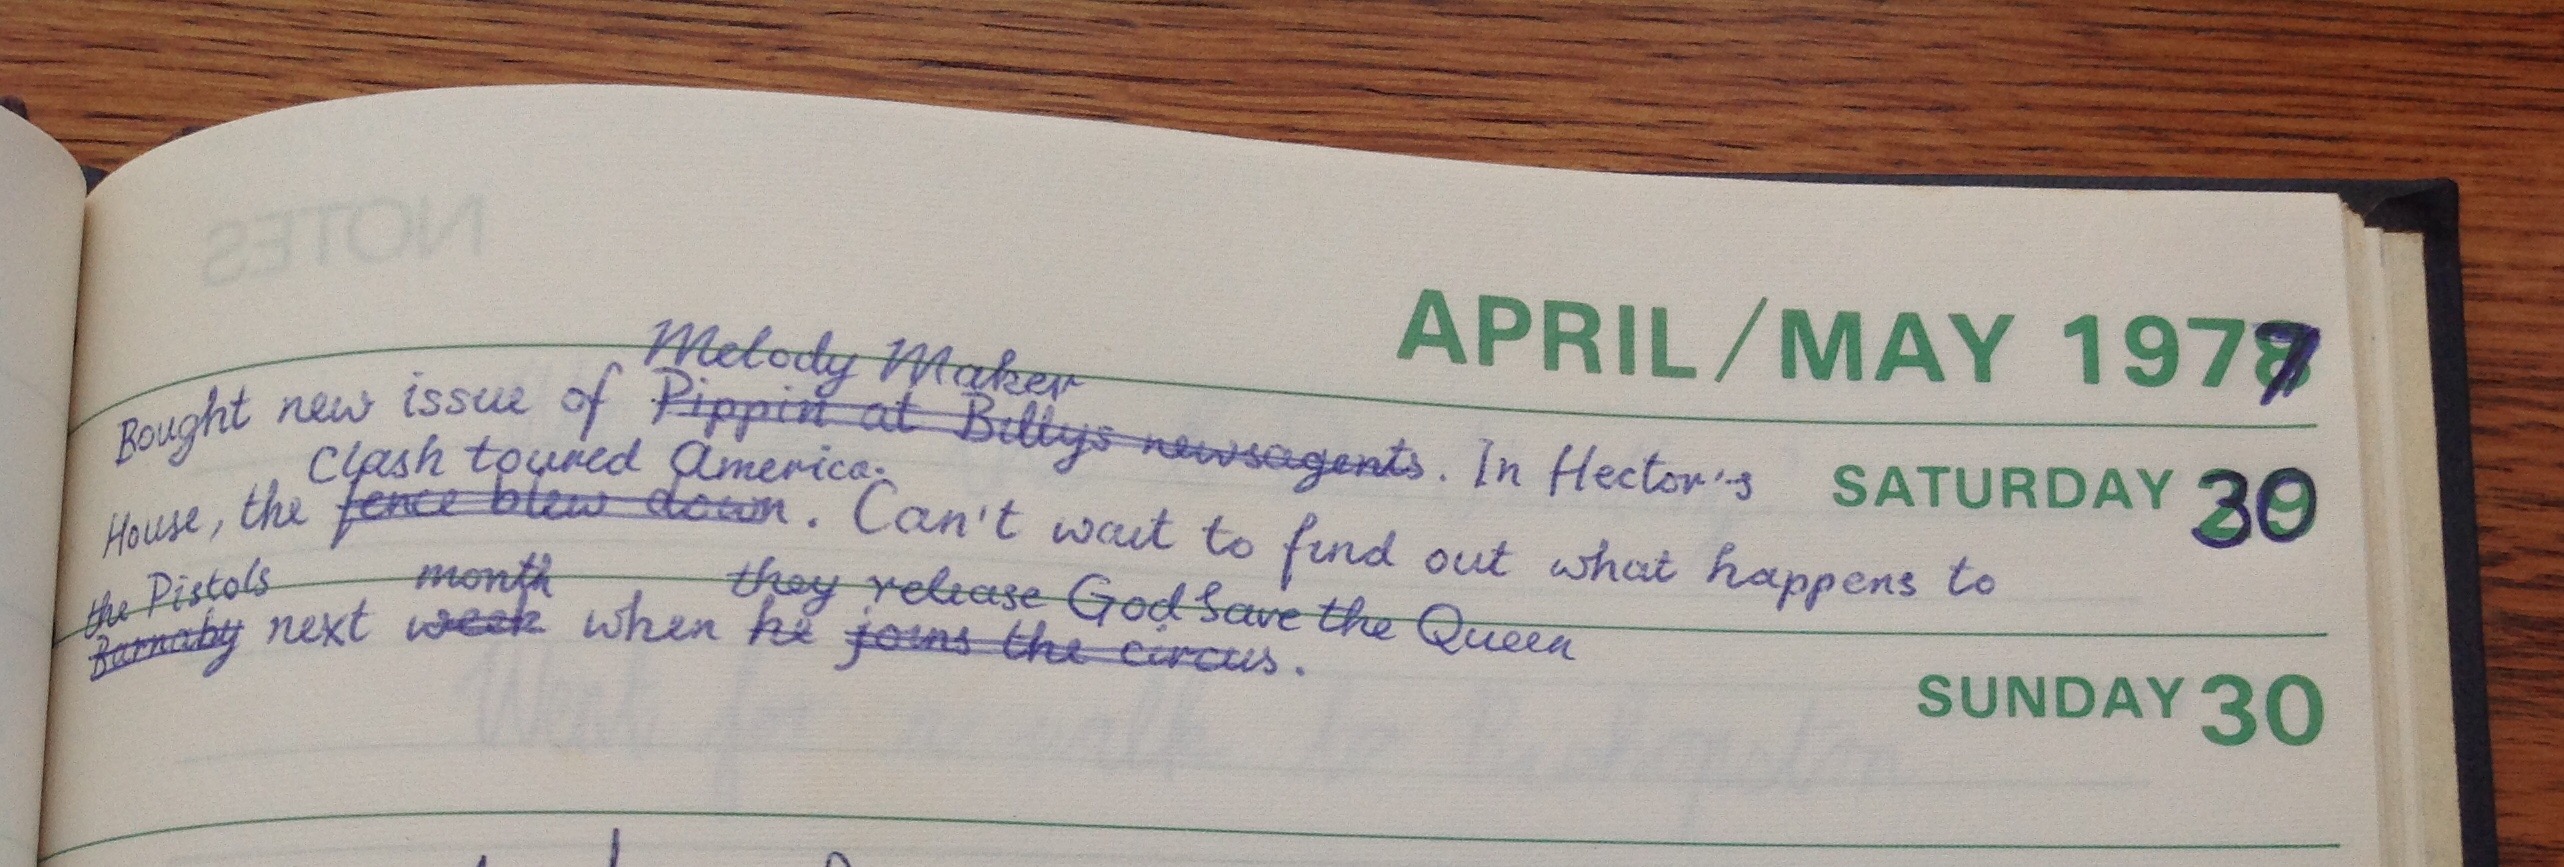 NOTES
APRIL/MAY 1977
Melody Maker
Bought new issue of Pippin at Billys newsagents. In Hector's
SATURDAY 30
Clash toured America.
House, the fence blew down. Can't wait to find out what happens to
the Pistols month they release God Save the Queen
Barnaby next week when he joins the circus.
SUNDAY 30